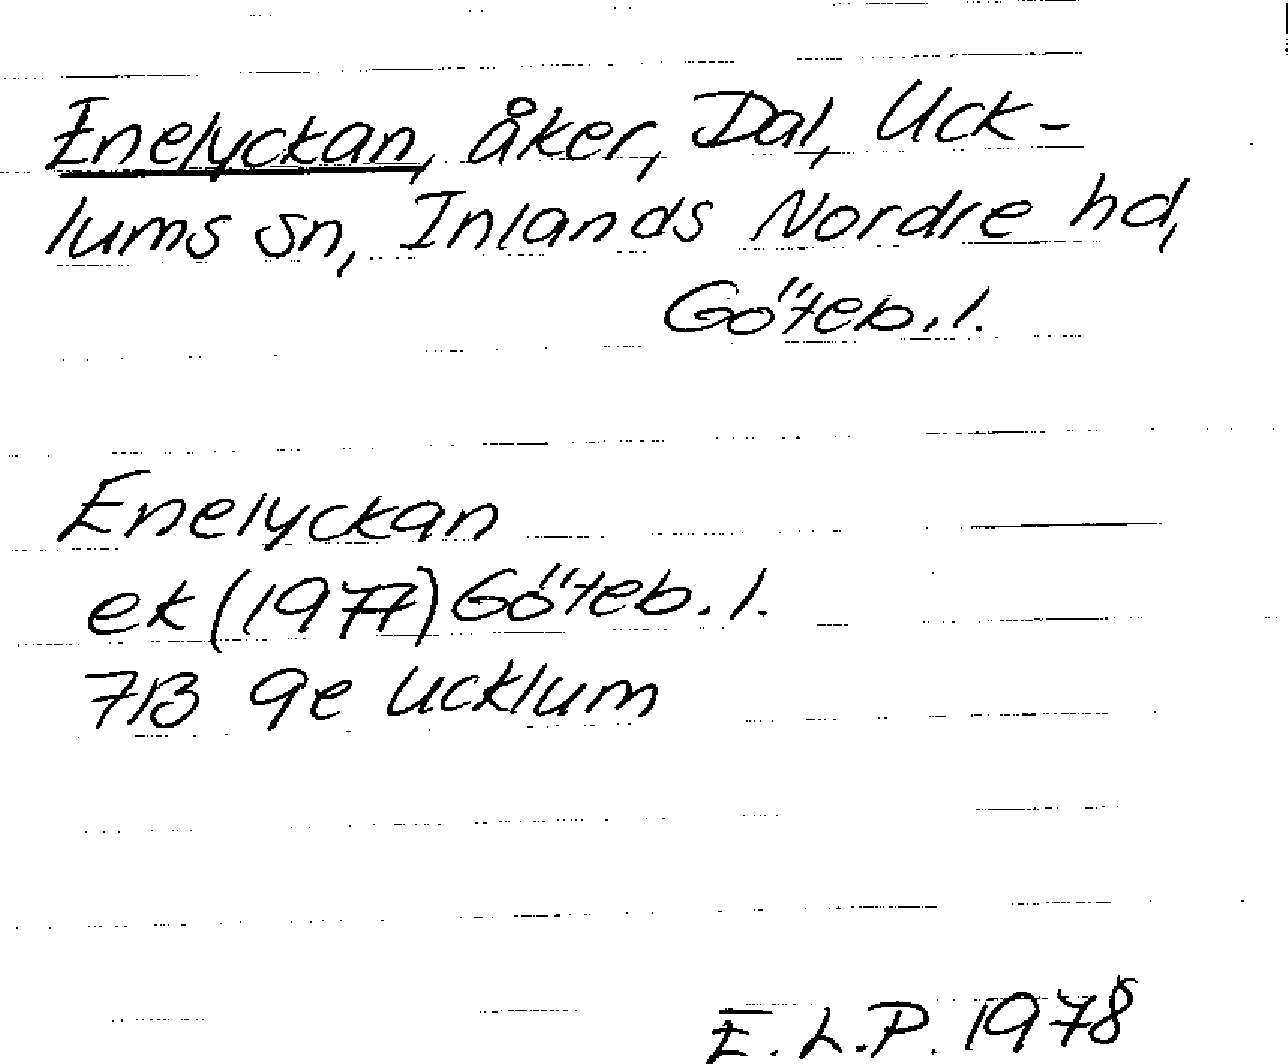 Enelyckan, åker, Dal, Uck-
lums sn, Inlands Nordre hd,
Göteb. l.
Enelyckan
ek (1977) Göteb. l.
7B 9e Ucklum
E. L. P. 1978